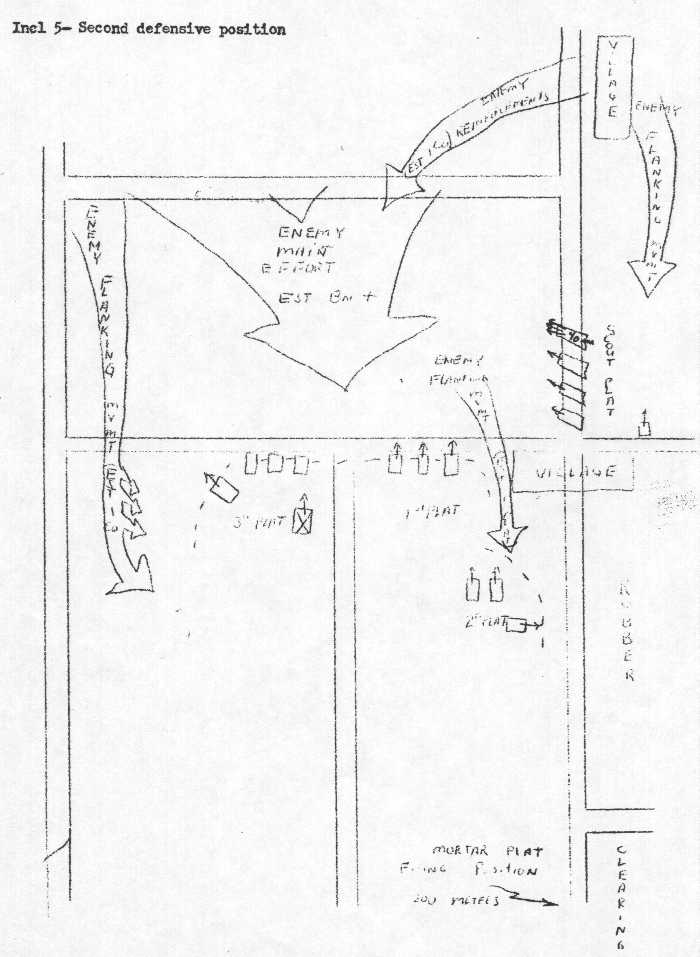 Incl 5- Second defensive position
VILLAGE
ENEMY
REINFORCEMENTS
EST 1 Co
ENEMY
FLANKING
MVMT
ENEMY
FLANKING
MVMT
EST 1 Co
ENEMY
MAIN
EFFORT
EST Bn +
SCOUT PLAT
ENEMY
FLANKING
MVMT
VILLAGE
3rd PLAT
1st PLAT
2nd PLAT
RUBBER
MORTAR PLAT
FIRING POSITION
200 METERS
CLEARING